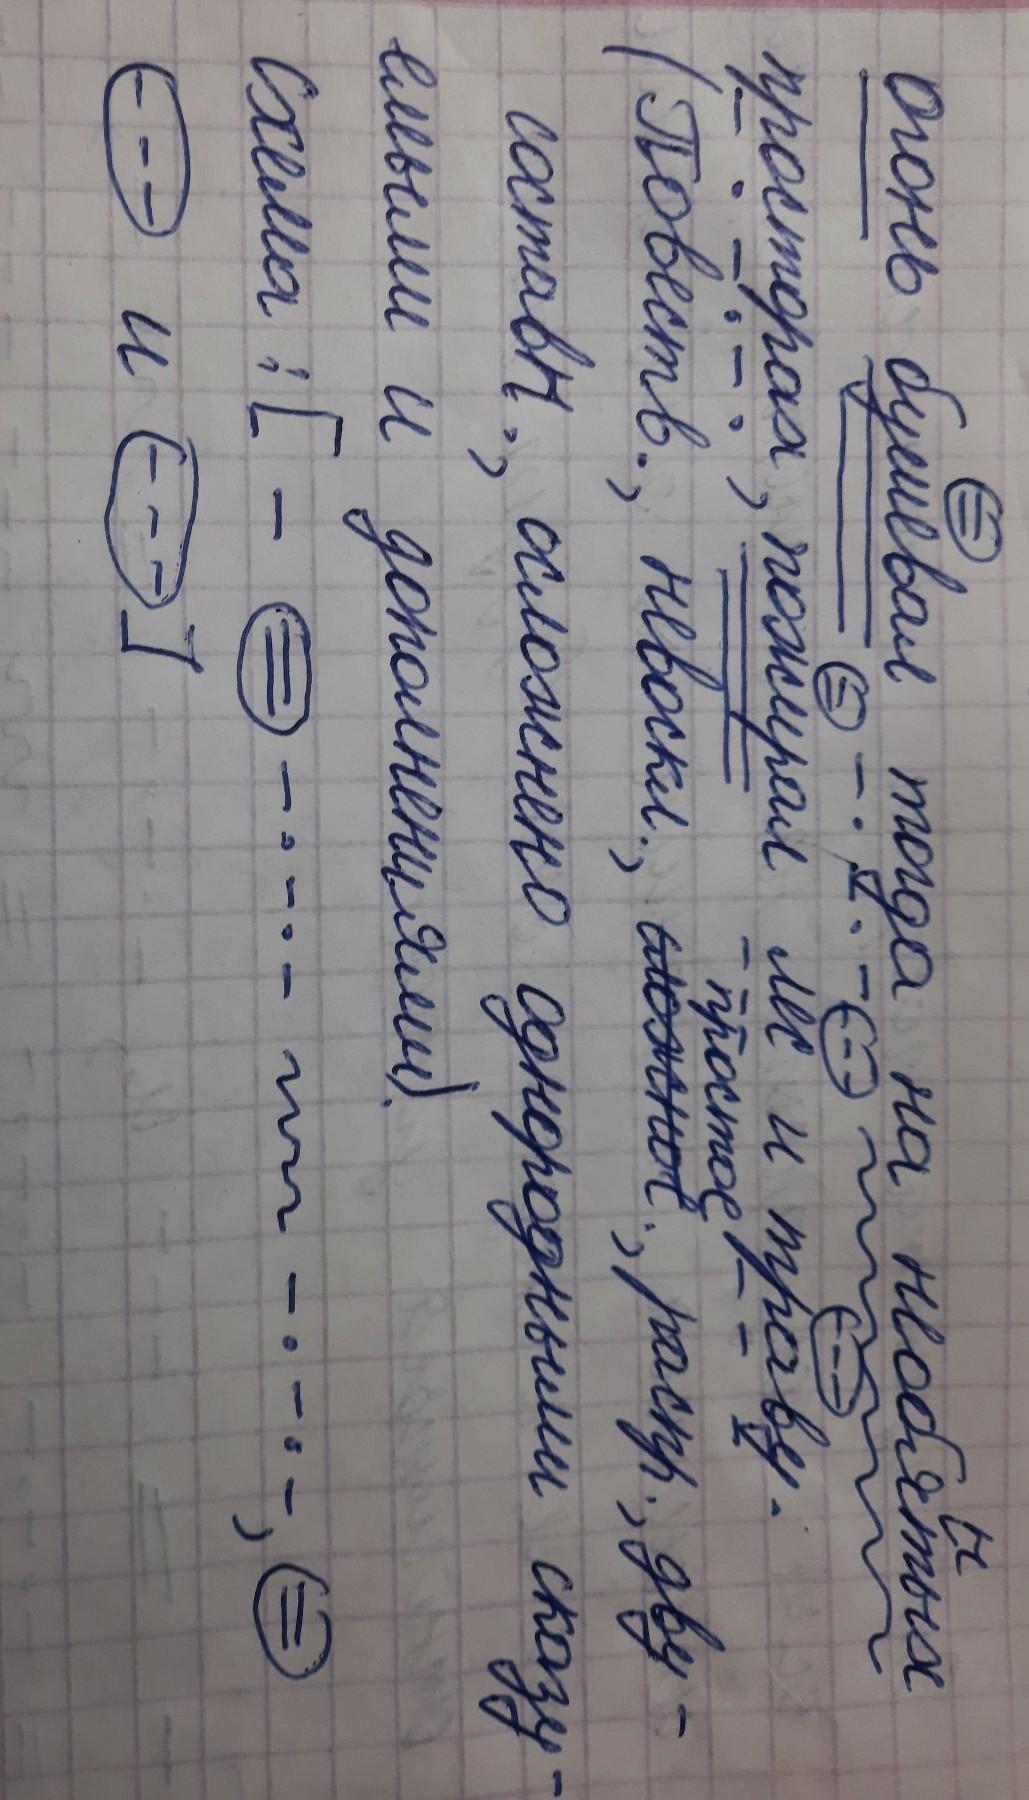 огонь бушевал тогда на необятных
ъ
просторах, пожирал лес и траву.
простое
(Повеств., невоскл., сложное, распр., дву-
составн., осложнено однородными сказу-
емыми и дополнениями).
Схема: [
и
]